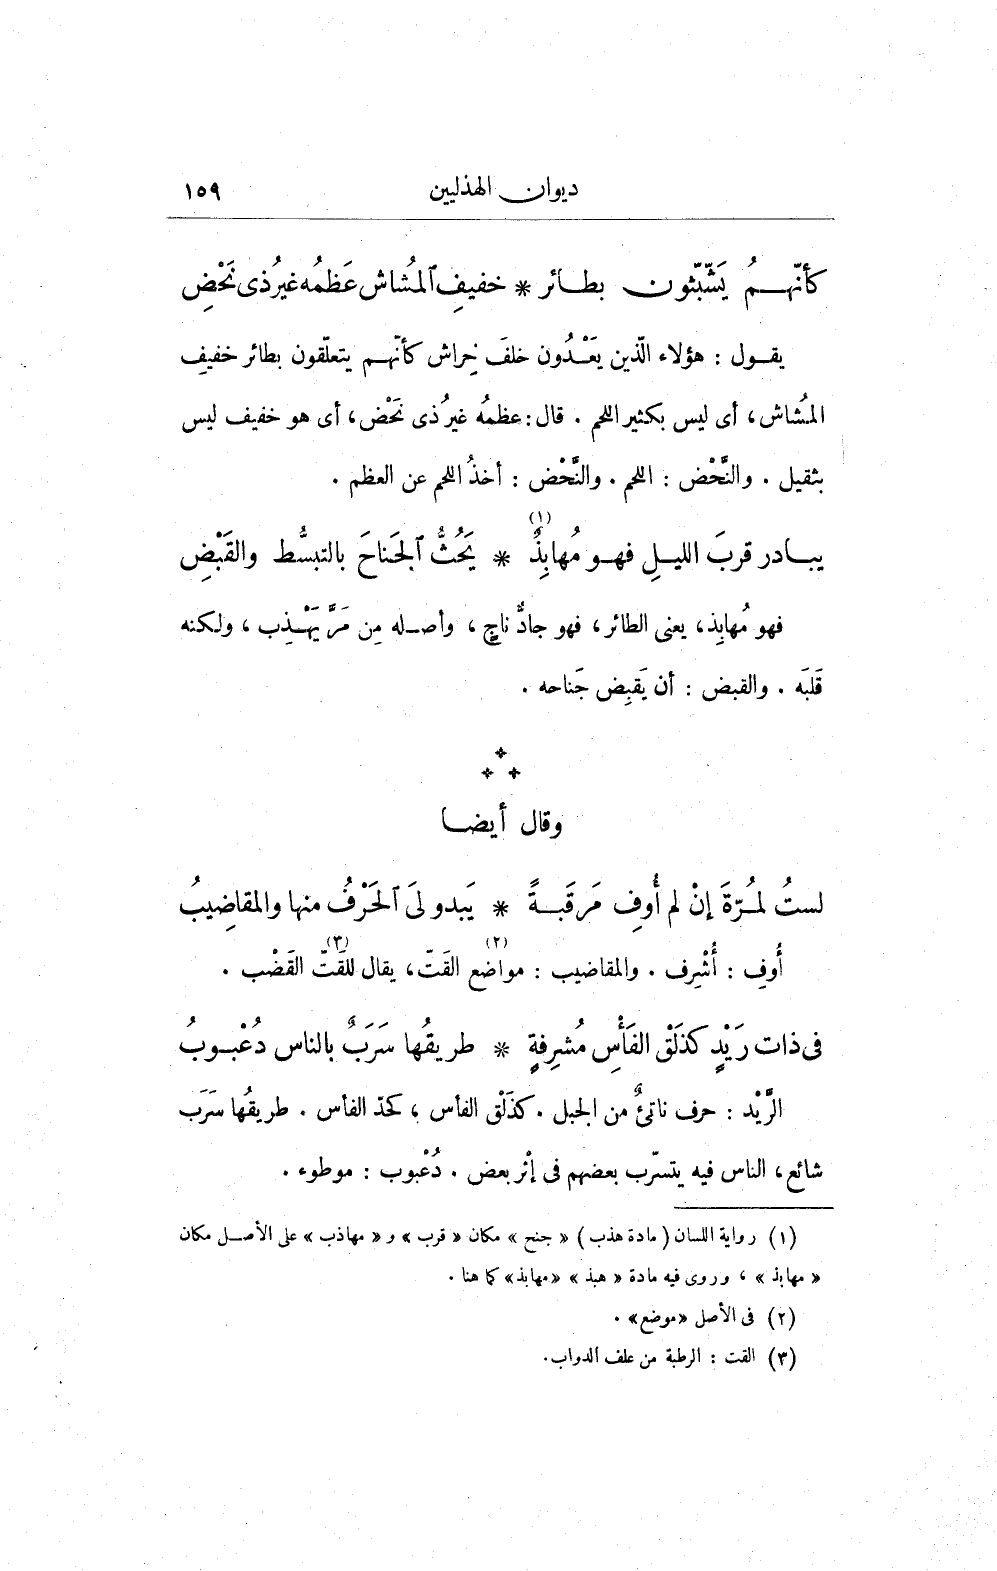 ديوان الهذليين ١٥٩
كأنّهـــمُ يَشّبّثون بطــائر * خفيفِ ٱلمُشاش عَظمُه غيرُ ذى نَحْضِ
يقـول : هؤلاء الّذين يَعْـدُون خلفَ خِراش كأنّهـم يتعلّقون بطائر خفيفِ
المُشاش، أى ليس بكثير اللحم . قال : عظمُه غيرُ ذى نَحْض، أى هو خفيف ليس
بثقيل . والنَّحْض : اللحم . والنَّحْض : أخذُ اللحم عن العظم .
يبــادر قربَ الليــلِ فهـو مُهابِذٌ (١) * يَحُثُّ ٱلجَناحَ بالتبسُّط والقَبْضِ
فهو مُهابِذ، يعنى الطائر، فهو جادٌّ ناجٍ ، وأصـله مِن مَرَّ يَهْـذِب ، ولكنه
قَلَبَه . والقبض : أن يَقبِض جَناحه .
وقال أيضــا
لستُ لمُـرّةَ إنْ لم أُوفِ مَرقَبــةً * يَبدو لىَ ٱلحَرْفُ منها والمقاضِيبُ
أُوفِ : أُشْرِف . والمقاضيب : مواضع (٢) القَتّ، يقال للقَتّ (٣) القَضْب .
فى ذات رَيْدٍ كذَلْق الفَأْسِ مُشرِفةٍ * طريقُها سَرَبٌ بالناس دُعْبــوبُ
الرَّيْد : حرف ناتئٌ من الجبل . كذَلْق الفأس ، كحدّ الفأس . طريقُها سَرَب
شائع، الناس فيه يتسرّب بعضهم فى إثْر بعض . دُعْبوب : موطوء .
(١) رواية اللسان ( مادة هذب ) « جنح » مكان « قرب » و « مهاذب » على الأصــل مكان
« مهابذ » ، وروى فيه مادة « هبذ » «مهابذ» كما هنا .
(٢) فى الأصل «موضع» .
(٣) القت : الرطبة من علف الدواب.